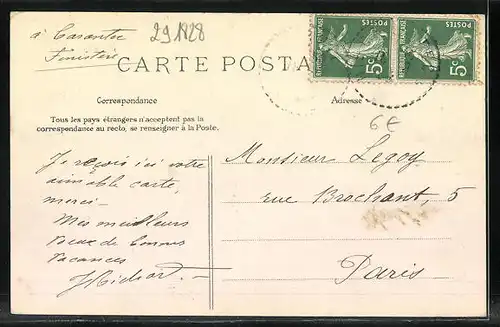 à Carantec
Finistère
291828
CARTE POSTA
POSTES
5c
POSTES
5c
Correspondance
Adresse
Tous les pays étrangers n'acceptent pas la
correspondance au recto, se renseigner à la Poste.
6€
Je reçois ici votre
aimable carte,
merci -
Mes meilleurs
voeux de bonnes
vacances
Monsieur Legoy
rue Brochant, 5
Paris -